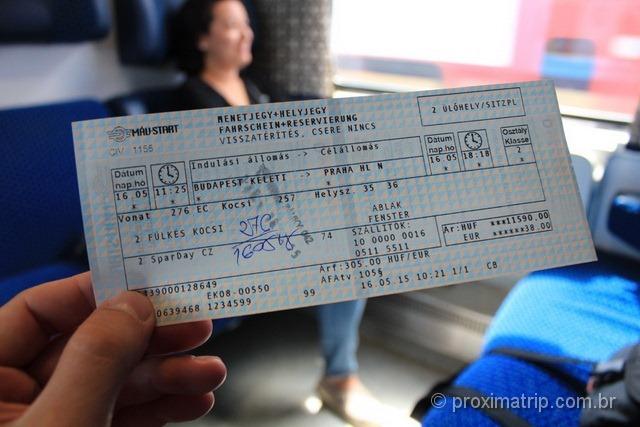 MENETJEGY+HELYJEGY
MÁV-START FAHRSCHEIN+RESERVIERUNG 2 ÜLŐHELY/SITZPL
CIV 1156 VISSZATÉRÍTÉS, CSERE NINCS
Dátum nap.ho Indulási állomás -> Célállomás Dátum nap.ho Osztály Klasse
16 05 11:25 BUDAPEST KELETI -> PRAHA HL N 16 05 18:18 2
* * * * * * *
Vonat 276 EC Kocsi 257 Helysz 35 36
2 FÜLKÉS KOCSI 276 ABLAK
FENSTER
2 SparDay CZ 74 SZÁLLÍTÓK: Ár:HUF ***11590.00
10 0000 0016 EUR ******38.00
0511 5511
Arf:305.00 HUF/EUR
39000128649 EK08-00550 AFAtv.105§
0639468 1234599 99 16.05.15 10:21 1/1 CB
© proximatrip.com.br